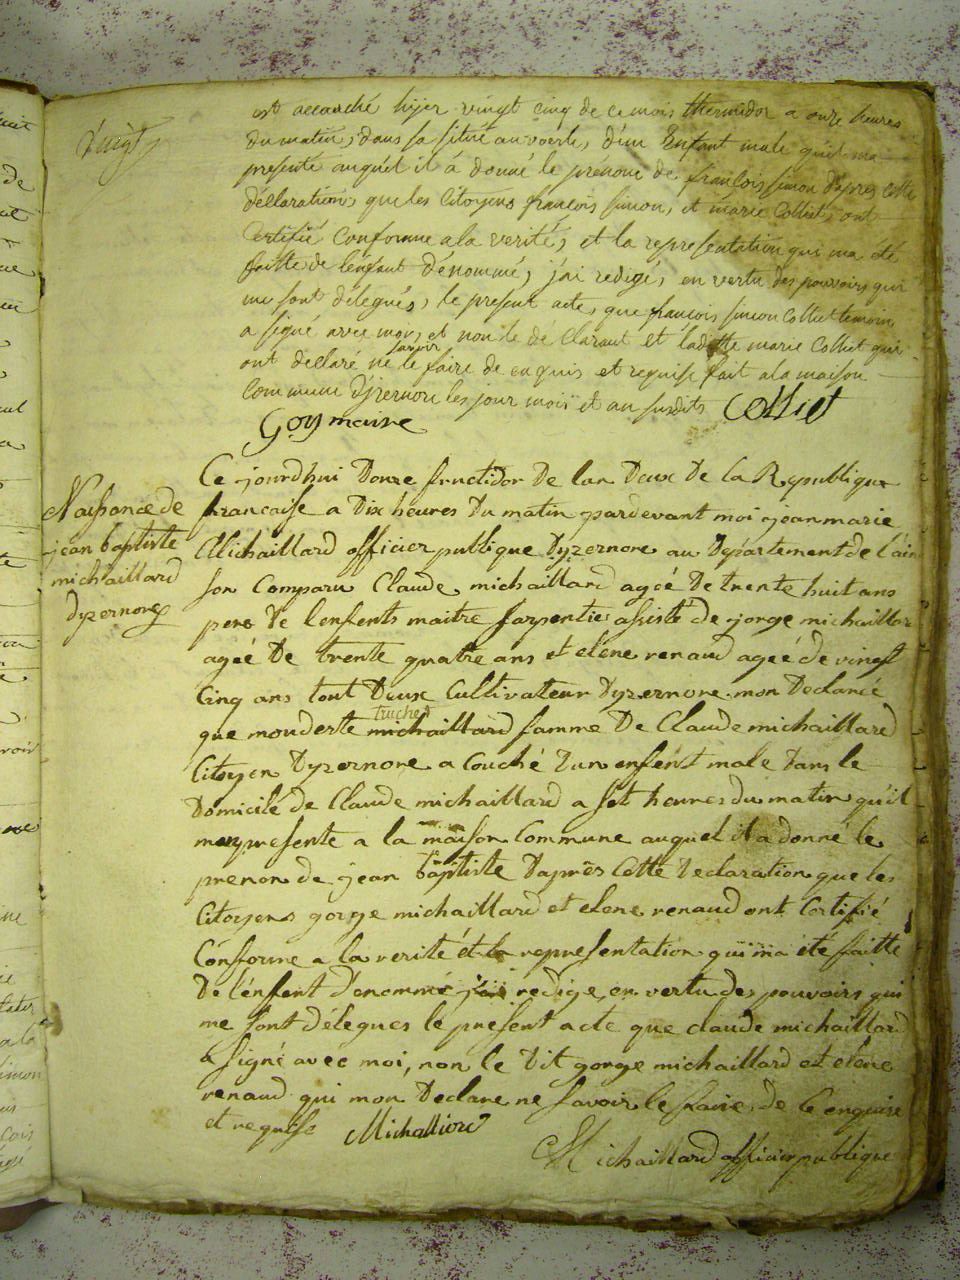 vingt
est accouché hijer vingt cinq de ce mois thermidor a onze heures
du matin, dans sa situé au voerle, d'un Enfant male quil ma
presenté auquel il á donné le prénom de françois simon d'apres cette
déclaration, que les Citoyens françois simon, et marie Colliet, ont
Certifié Conforme a la verité, et la representation qui ma été
faitte de l'enfant dénommé, j'ai redigé, en vertu des pouvoirs qui
me sont délegués, le present acte, que françois simon Colliet temoin
a signé avec moi, et non le déclarant et laditte marie Colliet qui
ont déclaré ne savoir le faire de enquis et requise fait a la maison
Commune d'jzernore les jour mois et an susdits Colliet
Goy maire
Naissance de
jean baptiste
michaillard
dyzernore
Ce jourdhui Douze fructidor De lan Deux De la Republique
francaise a Dix heures Du matin pardevant moi jean marie
Michaillard officier publique Dyzernore au Département de l'ain
son Comparu Claude michaillard ageé De trente huit ans
pere De lenfents maitre sarpentie assisté de jorge michaillard
ageé De trente quatre ans et elene renaud ageé de vingt
Cinq ans tout Deux Cultivateur Dyzernore mon Declareé
truchet
que mouderte michaillard famme De Claude michaillard
Citoyen Dyzernore a Couché Dun enfent male Dans le
Domicile de Claude michaillard a set heures du matin qu'il
presente a la maison Commune auquel il a donné le
prenon de jean baptiste Dapres Cette Declaration que les
Citoyens gorge michaillard et elene renaud ont Certifié
Conforme a la verité et la representation qui ma été faitte
De l'enfent Denommé j'ai redige en vertu des pouvoirs qui
me sont délegues le present acte que claude michaillard
a signé avec moi, non le Dit gorge michaillard et elene
renaud qui mon Declare ne savoir le faire de Ce enquise
et requise Michalliard
Michaillard officier publique